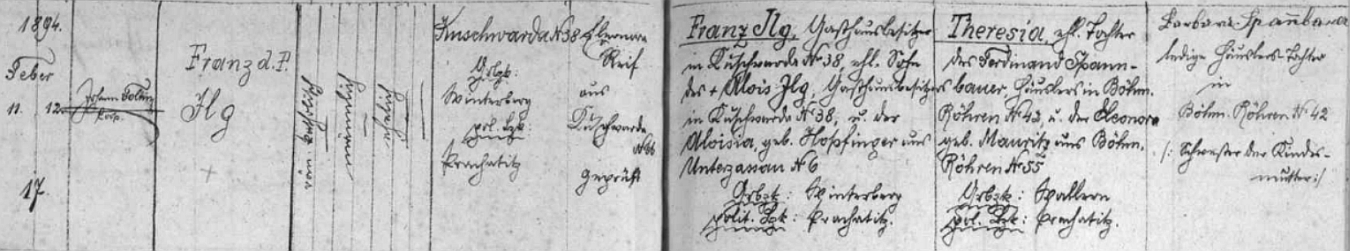 1894.
Feber
11. 12.
17.
Johann
Franz d. P.
Ilg
Kuschwarda N. 38
Gbzk:
Winterberg
pol. Bzk:
Prachatitz
Reif
aus
Kuschwarda
N 66
geprüft
Franz Ilg, Gasthausbesitzer
in Kuschwarda N. 38, ehl. Sohn
des + Alois Ilg, Gasthausbesitzers
in Kuschwarda N. 38, u. der
Aloisia, geb. Hopfinger aus
Unterzassau N 6
Grbzk: Winterberg
polit. Bzk: Prachatitz.
Theresia, ehl. Tochter
des Ferdinand Spann-
bauer, Häuslers in Böhm.
Röhren N. 42, u. der Eleonora
geb. Mauritz aus Böhm.
Röhren N. 55
Grbzk: Wallern
pol. Bzk: Prachatitz.
Barbara Spannbauer
ledige Häuslers-Tochter
in
Böhm. Röhren N. 42
/: Schwester der Kindes-
mutter :/